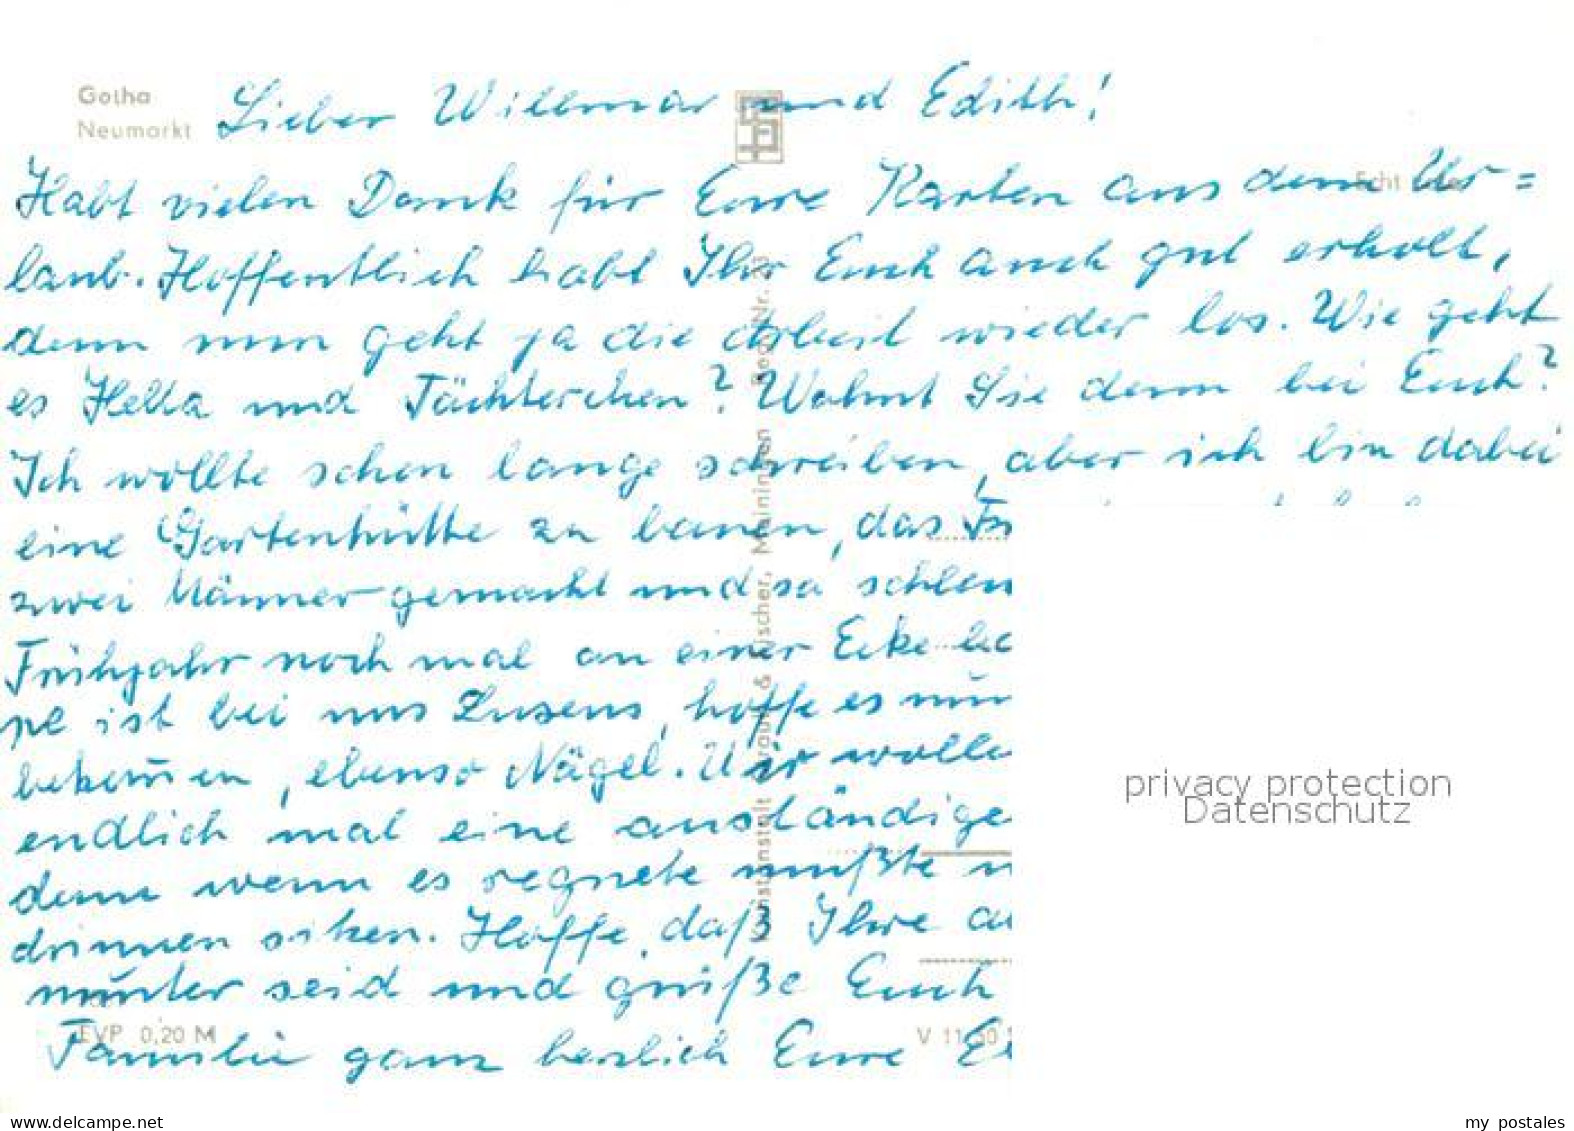 Gotha
Neumarkt
Lieber Willmar und Edith!
Echt
Habt vielen Dank für Eure Karten aus dem Ur=
laub. Hoffentlich habt Ihr Euch auch gut erholt,
denn nun geht ja die Arbeit wieder los. Wie geht
es Hella und Töchterchen? Wohnt Sie denn bei Euch?
Ich wollte schon lange schreiben, aber ich bin dabei
eine Gartenhütte zu bauen, das
zwei Männer gemacht und so
Frühjahr noch mal an einer Ecke
ist bei uns hoffe es nun
bekommen, ebenso Nägel. Wir
endlich mal eine anständige
denn wenn es regnete mußte
drinnen sitzen. Hoffe, daß Ihre
munter seid und grüße Euch
Familie ganz herzlich Eure
EVP 0,20 M
V 11 50
privacy protection
Datenschutz
www.delcampe.net
my_postales